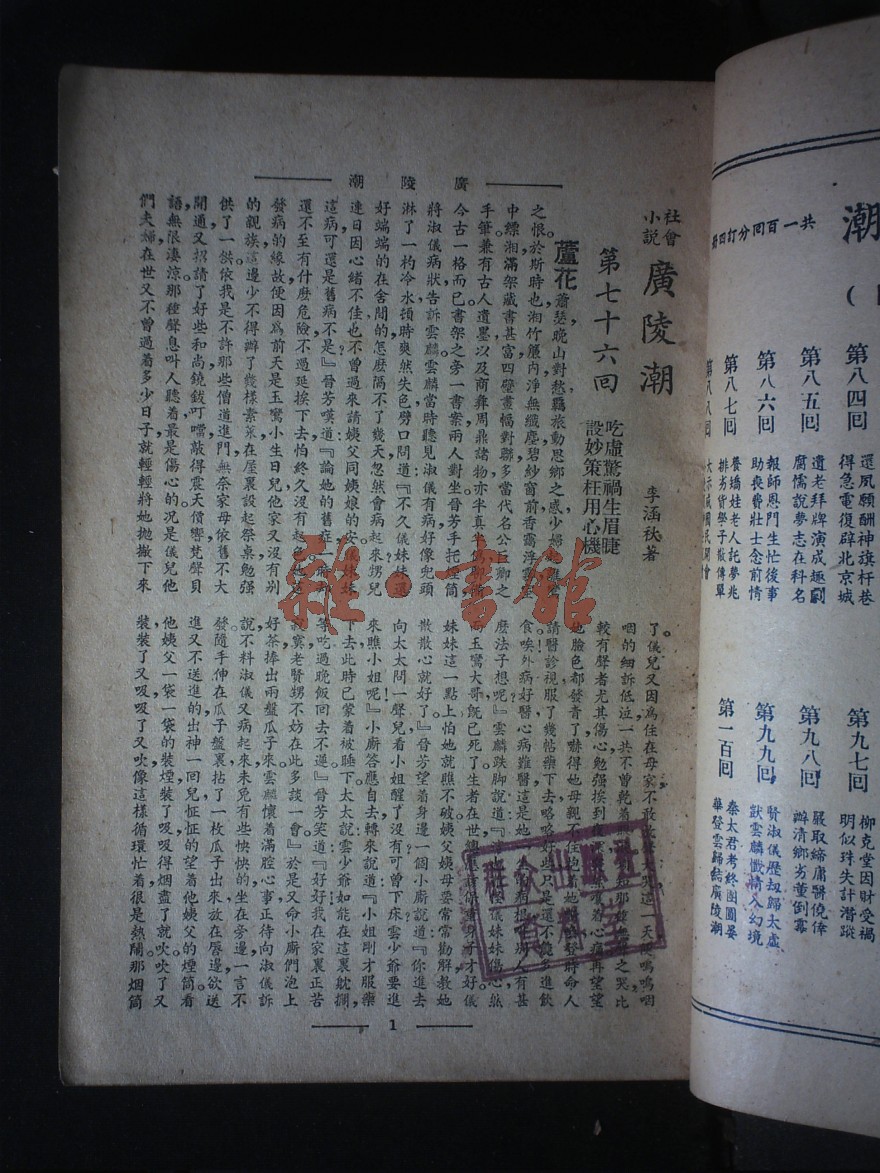 廣陵潮
社會
小說
廣陵潮
李涵秋著
第七十六回
吃虛驚禍生眉睫
設妙策枉用心機
蘆花蕭瑟晚山對愁羈旅動思鄉之感少婦
之恨於斯時也湘竹簾內淨無纖塵碧紗窗前香靄浮
中縹湘滿架藏書甚富四壁畫幅對聯多當代名公巨卿之
手筆兼有古人遺墨以及商彝周鼎諸物亦半真半
今古一格而已書架之旁一書案兩人對坐晉芳手托煙筒
將淑儀病狀告訴雲麟雲麟當時聽見淑儀有病好像兜頭
淋了一杓冷水頓時爽然失色劈口問道『不久儀妹妹還
好端端的在舍間的怎麽隔不了幾天忽然會病起來甥兒
連日因心緒不佳也不曾過來請姨父同姨娘的安儀妹妹
這病可還是舊病不是』晉芳嘆道『論她的舊症
還不至有什麽危險不過延挨下去怕終久沒有起色
發病的緣故便因爲前天是玉鸞小生日兒他家又沒有別
的親族這邊少不得辦了幾樣素菜在屋裏設起祭桌勉強
供了一供依我是不許那些僧道進門無奈家母依舊不大
開通又招請了好些和尚鐃鈸叮噹敲得震天價響梵聲貝
語無限淒涼那種聲息叫人聽着最是傷心的况是儀兒他
們夫婦在世又不曾過着多少日子就輕輕將她拋撇下來
了儀兒又因爲住在母家不敢
這一天
嗚嗚咽
咽的細訴低泣一共不曾乾着
那種
之哭比
較有聲者尤其傷心勉強挨到夜
嚷着心痛再望望
她臉色都發青了嚇得她母親不住
登時命人
請醫診視服了幾帖藥下去咯咯好些只是還不能多進飲
食唉外病好醫心病難醫這是她
人有甚
麽法子想呢』雲麟跌脚說道『
儀妹妹傷心然
而玉鸞大哥旣已死了生者在世總
保重身子才好儀
妹妹這一點上怕她就瞧不破姨父姨母要常常勸解教她
散散心就好了』晉芳望着身邊一個小廝說道『你進去
向太太問一聲兒看小姐醒了沒有可曾下床雲少爺要進
來瞧小姐呢』小廝答應自去轉來說道『小姐剛才服藥
下去此時已蒙着被睡下太太說雲少爺如能在這裏躭擱
等吃過晚飯回去不遲』晉芳笑道『好好我在家裏正苦
寂寞老賢甥不妨在此多談一會』於是又命小廝們泡上
好茶捧出兩盤瓜子來雲麟懷着滿腔心事正待向淑儀訴
說不料淑儀又病起來未免有些怏怏的坐在旁邊一言不
發隨手伸在瓜子盤裏拈了一枚瓜子出來放在唇邊欲送
進又不送進的出神一回兒怔怔的望着他姨父的煙筒看
他姨父一袋一袋的裝煙裝了吸吸得烟盡了就吹吹了又
裝裝了又吸吸了又吹像這樣循環忙着很是熱鬧那烟筒
1
雜·書館
群众出版社
潮
共一百回分訂四册
第八四回
還夙願酬神旗杆巷
得急電復辟北京城
第八五回
遺老拜牌演成趣劇
腐儒說夢志在科名
第八六回
報師恩門生忙後事
助喪費壯士念前情
第八七回
養嬌娃老人託夢兆
排劣貨學子散傳單
第八八回
第九七回
柳克堂因財受禍
明似珠失計潛蹤
第九八回
嚴取締庸醫僥倖
辦清鄉劣董倒霉
第九九回
賢淑儀歷劫歸太虛
獃雲麟懺情入幻境
第一百回
秦太君考終團圓宴
華登雲歸結廣陵潮